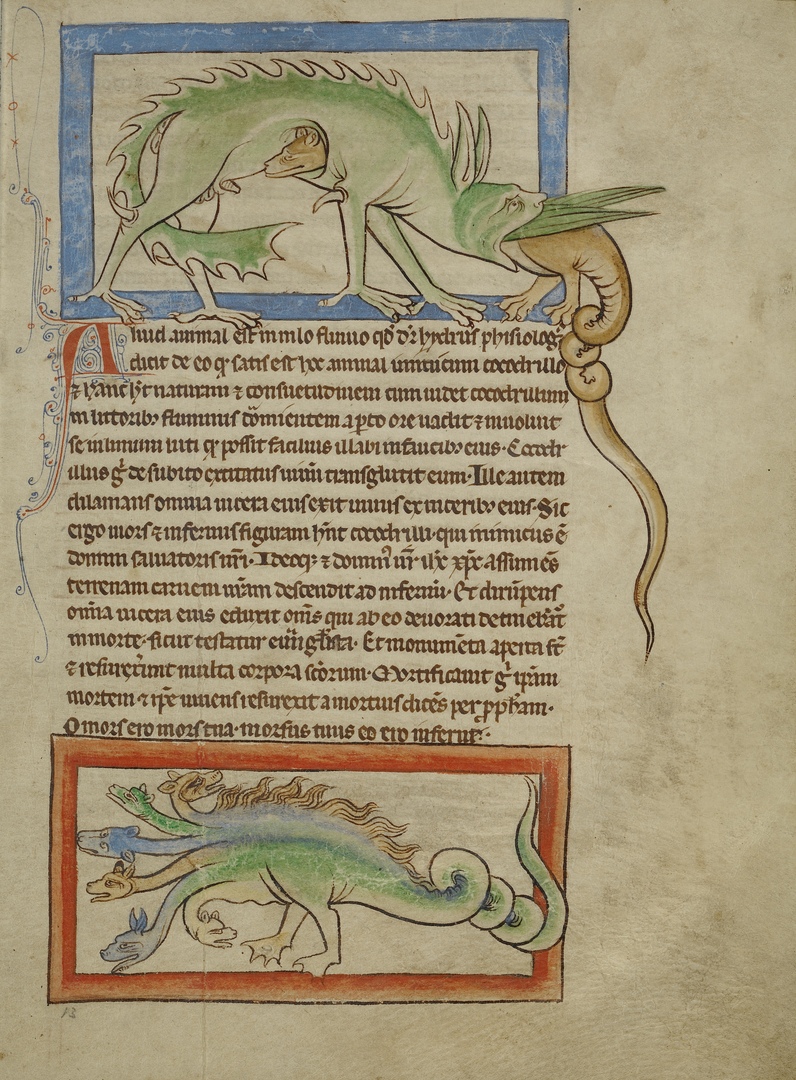 Aliud animal est in nilo fluuio qd dr hydrus phisiolog
dicit de eo qr satis est hoc animal inimicum cocodrillo
⁊ hanc ht naturam ⁊ consuetudinem cum uidet cocodrillum
in littorib; fluminis dormientem aperto ore uadit ⁊ inuoluit
se in limum luti qr possit facilius illabi in faucib; eius. Cocodr
illus g de subito excitatus uiuum transglutit eum. Ille autem
dilanians omnia uiscera eius exit uiuus ex uiscerib; eius. Sic
ergo mors ⁊ infernus figuram hnt cocodrilli. qui inimicus ē
domini saluatoris nri. Ideoq; ⁊ domin nr ihc xpc assumēs
terrenam carnem nram descendit ad infernū. Et dirūpens
omīa uiscera eius eduxit om̄s qui ab eo deuorati detinebāt
in morte. sicut testatur euuāgelista. Et monumēta aperta st
⁊ resurrexerunt multa corpora scorum. Mortificauit g ipsam
mortem ⁊ ipse uiuens resurrexit a mortuis dicēs per pphetam.
O mors ero mors tua. morsus tuus ero inferne.
13